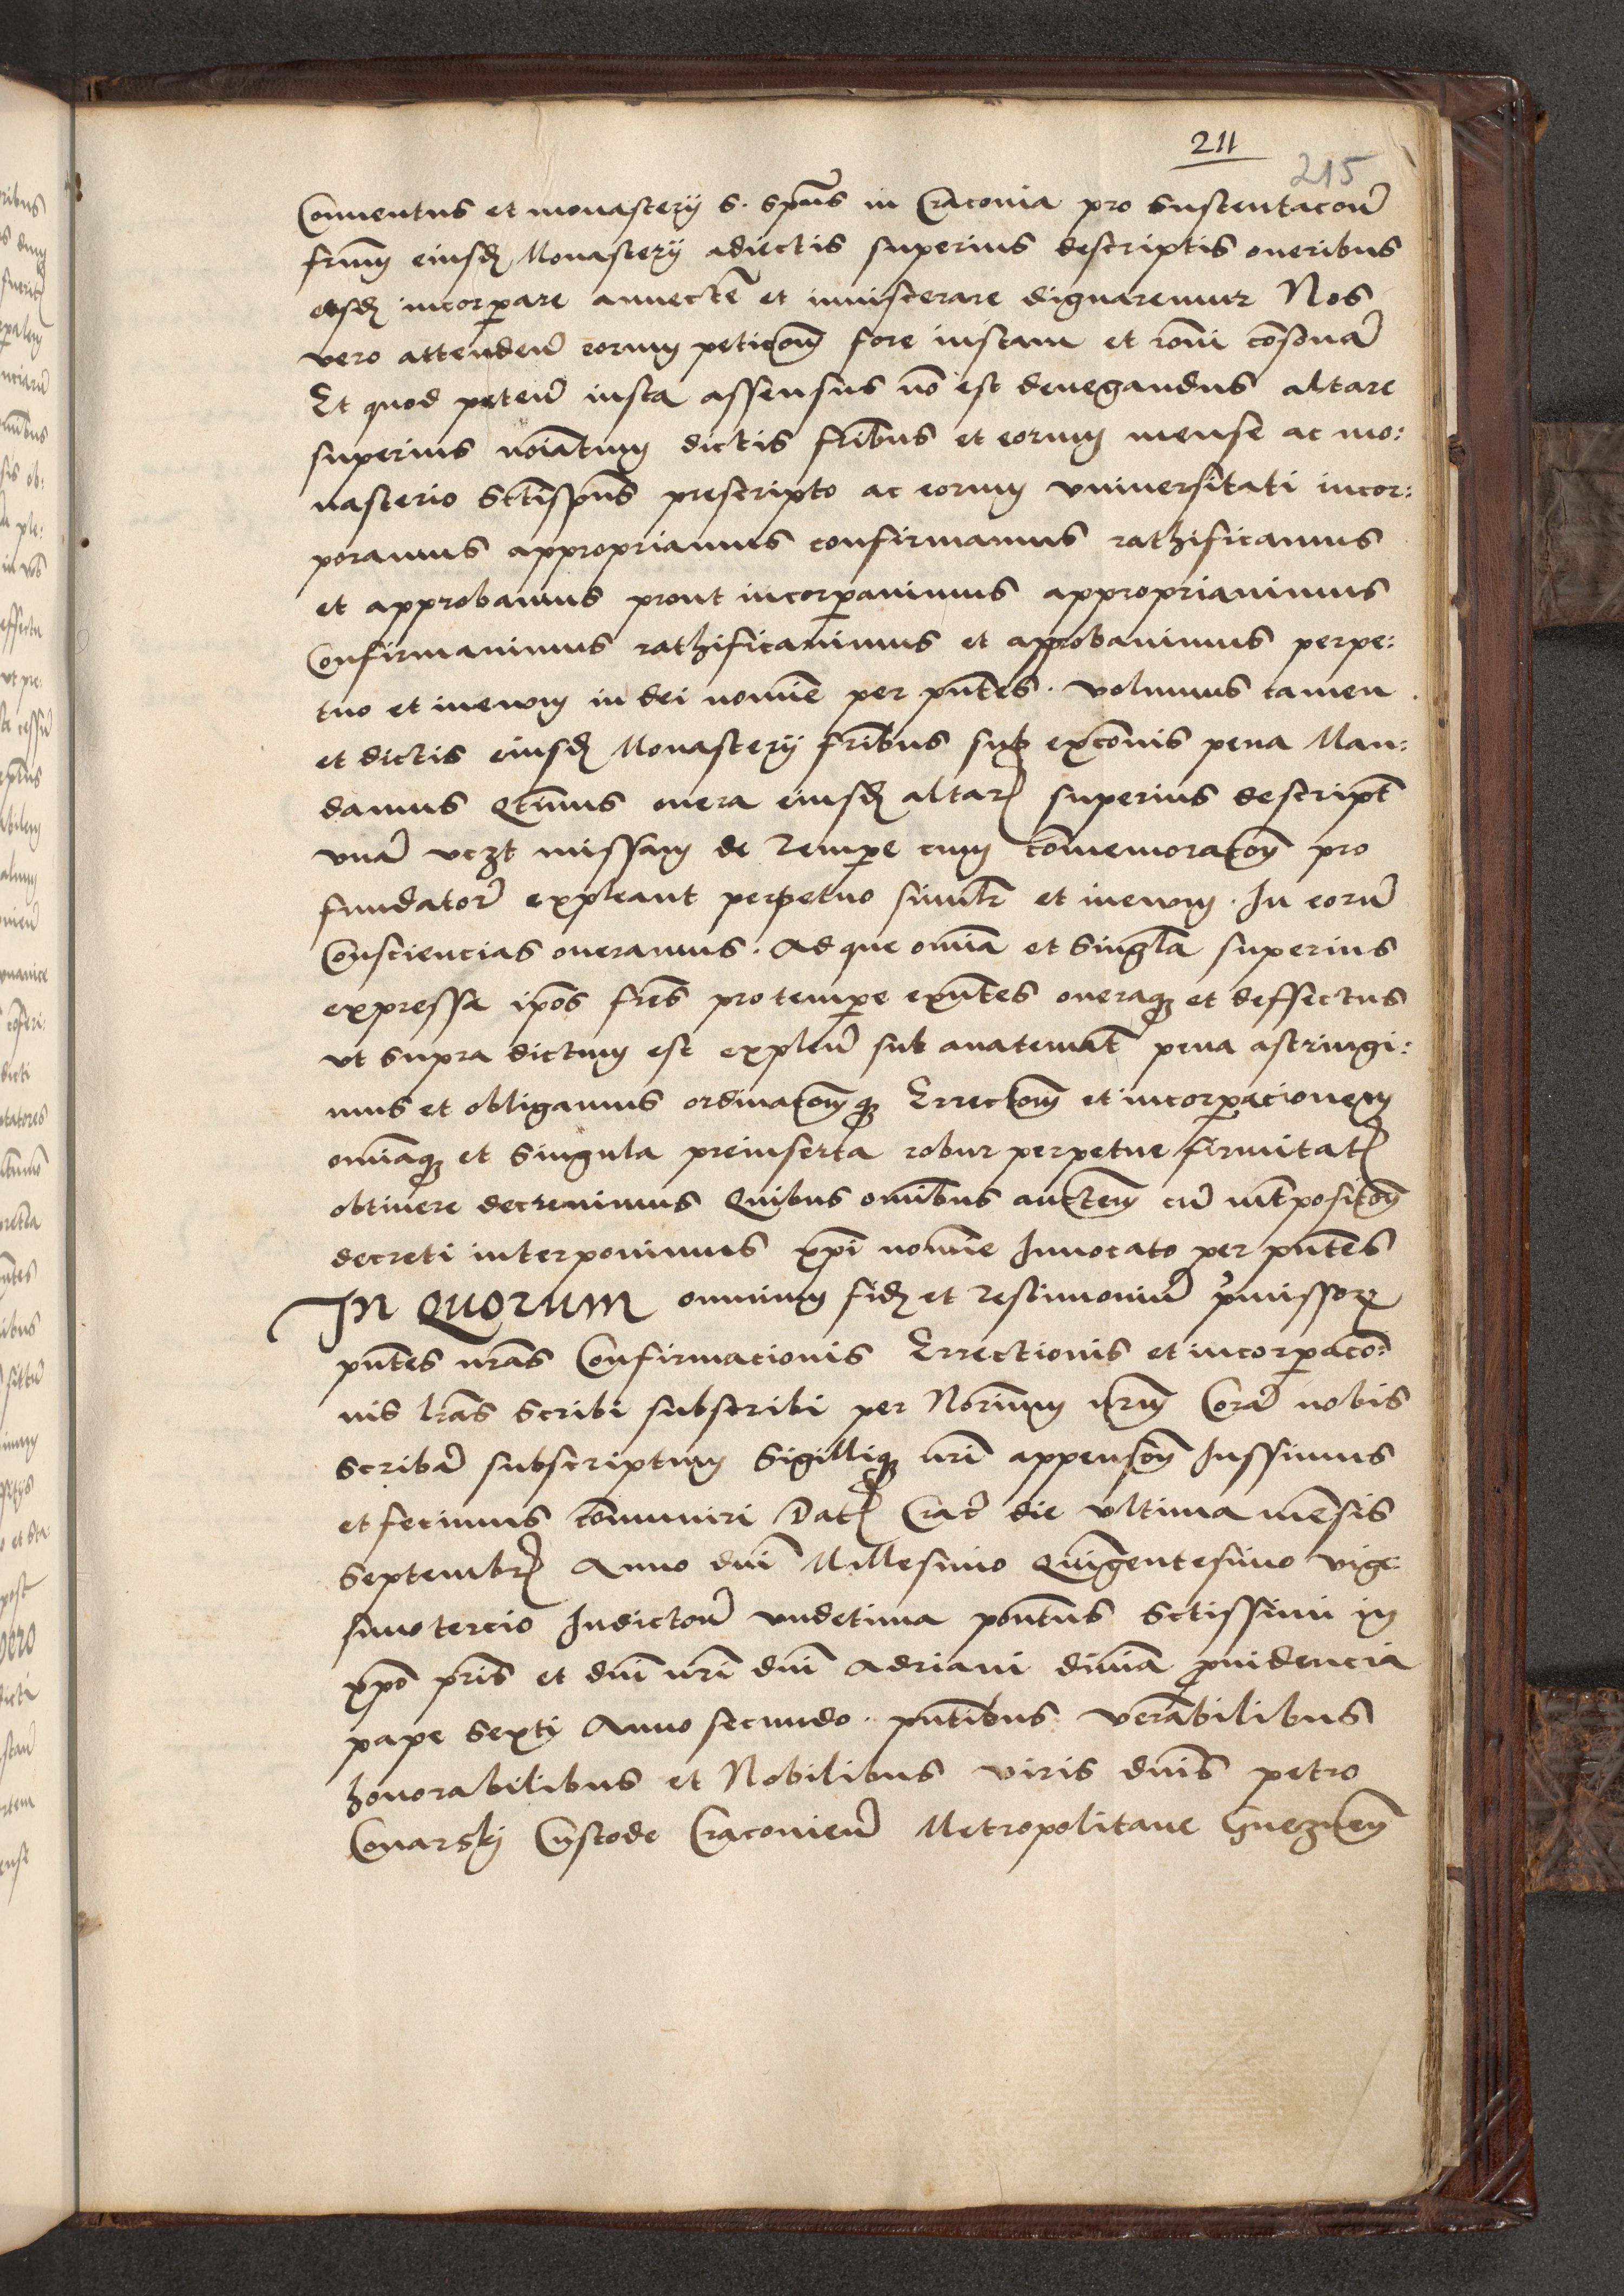 211
215
Conuentus et monasterij S. Spūs in Craconia pro sustentacoē
frūm eiusdē Monasterij adiectis superius descriptis oneribus
eisdē incorꝑare annectē et inuiscerare dignaremur Nos
vero attendeñ eorum peticōm fore iustam et rōni cōsonā
Et quod peteñ iusta assensus nō est denegandus altare
superius noīatum dictis fribus et eorum mense ac mo:
nasterio Sctīspūs prescripto ac eorum vniuersitati incor:
poramus appropriamus confirmamus rathificamus
et approbamus prout incorꝑauimus appropriauimus
Confirmauimus rathificauimus et approbauimus perpe:
tuo et ineuum in dei nomīe per pn̄tes. Volumus tamen
et dictis eiusdē Monasterij fribus sub excōnis pena Man:
damus Qtinus onera eiusdē altarꝭ superius descript̄
vnā vczt missam de Tempe cum cōmemoracōm pro
fundatorē expleant perpetuo simlr̄ et ineuum. In eorū
Consciencias oneramus. Ad que omīa et singl̄a superius
expressa ip̄os frēs pro tempe exn̄tes oneraqꝫ et deffectus
vt supra dictum est explen̄ sub anatemat̄ pena astringi:
mus et obligamus ordinacōmqꝫ Errectōm et incorꝑacionem
omīaqꝫ et singula preinserta robur perpetue firmitatꝭ
obtinere decreuimus Quibus omībus auctem cū int̄positōm
decreti interponimus xp̄i nomīe Inuocato per pn̄tes
In QUORUM omnium fidē et testimoniū p̄missorꝝ
pn̄tes nr̄as Confirmacionis Errectionis et incorꝑaco:
nis lr̄as scribi subscribi per Norīum nr̄um Corā nobis
scribā subscriptum Sigilliqꝫ nr̄i appensōm Iussimus
et fecimus cōmuniri Datꝭ Crac̄ die vltima mēsis
Septembrꝭ Anno dn̄i Millesimo Quīgentesimo vige:
simotercio Indictoē vndecima pontūs Sctissimi in
xp̄o pr̄is et dn̄i nr̄i dn̄i Adriani diuīa ꝓuidencia
pape Sexti Anno secundo. pn̄tibus Venerabilibus
honorabilibus et Nobilibus viris dn̄is petro
Conarskj Custode Cracouien̄ Metropolitane Gneznen̄